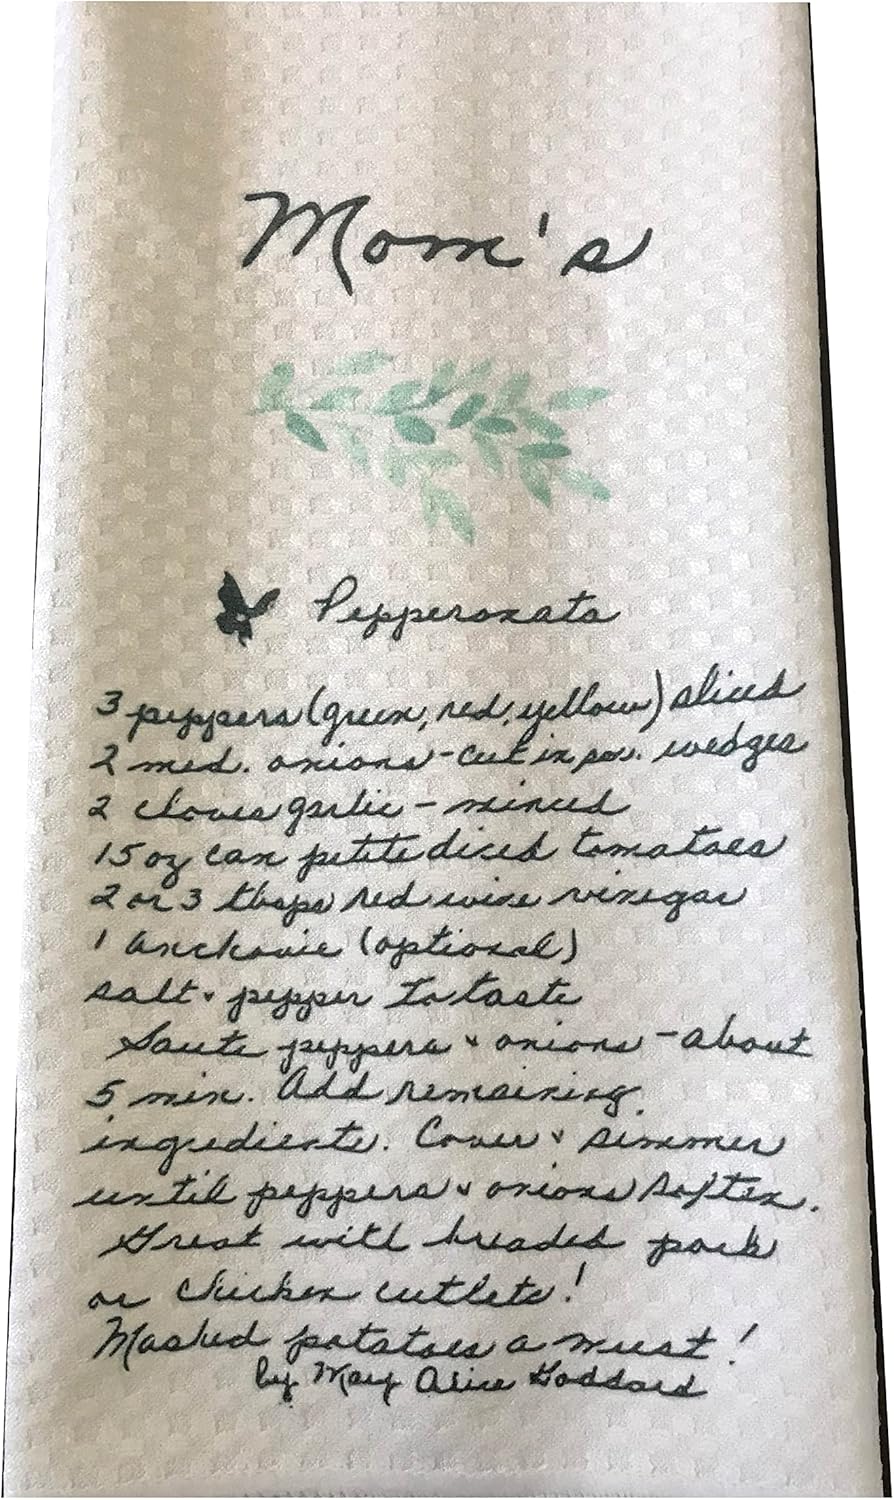 Mom's
Pepperonata
3 peppers (green, red, yellow) sliced
2 med. onions - cut in sm. wedges
2 cloves garlic - minced
15 oz can petite diced tomatoes
2 or 3 tbsps red wine vinegar
1 anchovie (optional)
salt & pepper to taste
Saute peppers & onions - about
5 min. Add remaining
ingredients. Cover & simmer
until peppers & onions soften.
Great with breaded pork
or chicken cutlets!
Mashed potatoes a must!
by Mary Alice Goddard